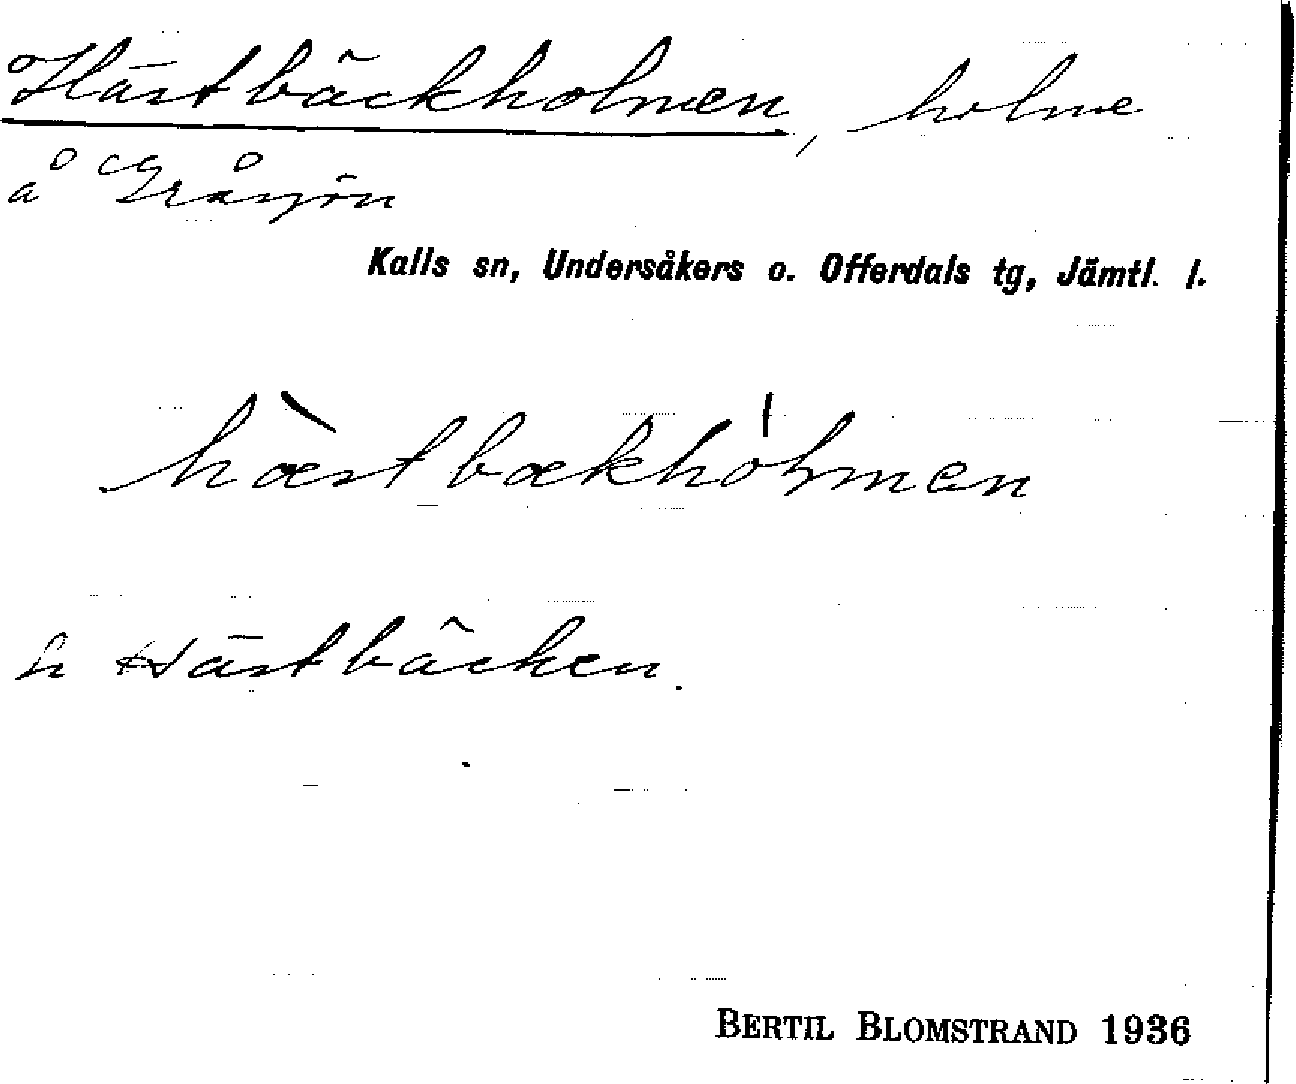 Hästbäckholmen, holme
å Gråsjön
Kalls sn, Undersåkers o. Offerdals tg, Jämtl. l.
hæ̀stbækhómen
Hästbäcken.
BERTIL BLOMSTRAND 1936